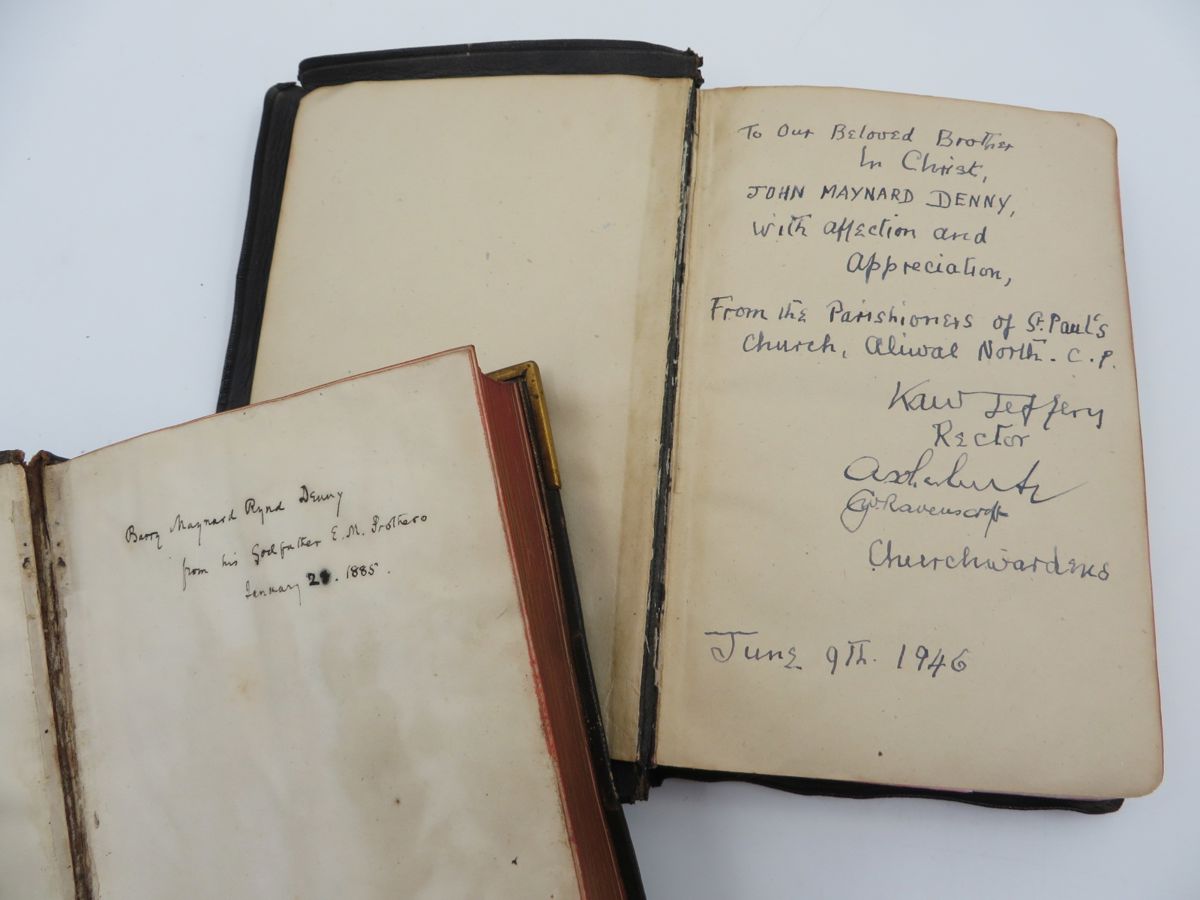 To Our Beloved Brother
In Christ,
JOHN MAYNARD DENNY,
with affection and
Appreciation,
From the Parishioners of St. Paul's
Church, Aliwal North. C.P.
Jeffery
Rector
Ravenscroft
Churchwardens
June 9th. 1946
Barry Maynard Rynd Denny
from his Godfather E. M. Prothero
January 1885.